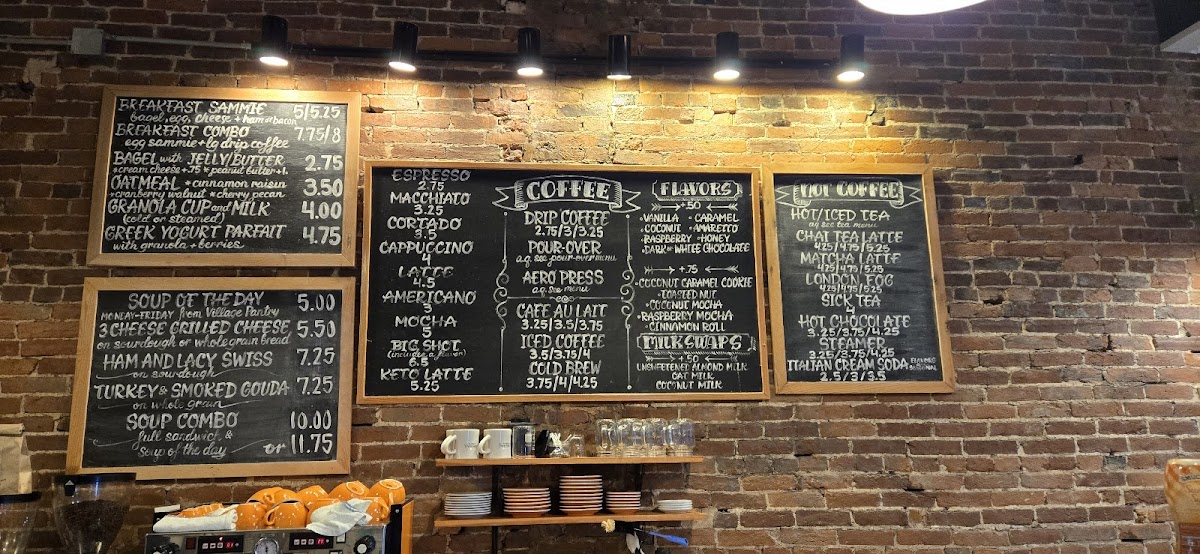 BREAKFAST SAMMIE 5/5.25
bagel, egg, cheese + ham or bacon
BREAKFAST COMBO 7.75/8
egg sammie + lg drip coffee
BAGEL with JELLY/BUTTER 2.75
+cream cheese +.75 * peanut butter +1.
OATMEAL * cinnamon raisin 3.50
* cranberry walnut * cherry pecan
GRANOLA CUP and MILK 4.00
(cold or steamed)
GREEK YOGURT PARFAIT 4.75
with granola + berries
SOUP OF THE DAY 5.00
MONDAY-FRIDAY from Village Pantry
3 CHEESE GRILLED CHEESE 5.50
on sourdough or whole grain bread
HAM AND LACY SWISS 7.25
on sourdough
TURKEY & SMOKED GOUDA 7.25
on whole grain
SOUP COMBO 10.00
full sandwich & or 11.75
soup of the day
ESPRESSO
2.75
MACCHIATO
3.25
CORTADO
3.5
CAPPUCCINO
4
LATTE
4.5
AMERICANO
3
MOCHA
5
BIG SHOT
(includes a flavor)
6.5
KETO LATTE
5.25
COFFEE
DRIP COFFEE
2.75/3/3.25
POUR-OVER
a.q. see pour over menu
AERO PRESS
a.q. see menu
CAFE AU LAIT
3.25/3.5/3.75
ICED COFFEE
3.5/3.75/4
COLD BREW
3.75/4/4.25
FLAVORS
+.50
•VANILLA •CARAMEL
•COCONUT •AMARETTO
•RASPBERRY •HONEY
•DARK OR WHITE CHOCOLATE
+.75
•COCONUT CARAMEL COOKIE
•TOASTED NUT
•COCONUT MOCHA
•RASPBERRY MOCHA
•CINNAMON ROLL
MILK SWAPS
UNSWEETENED ALMOND MILK
OAT MILK
COCONUT MILK
NOT COFFEE
HOT/ICED TEA
a.q. see tea menu
CHAI TEA LATTE
4.25/4.75/5.25
MATCHA LATTE
4.25/4.75/5.25
LONDON FOG
4.25/4.75/5.25
SICK TEA
4
HOT CHOCOLATE
3.25/3.75/4.25
STEAMER
3.25/3.75/4.25
ITALIAN CREAM SODA
2.5/3/3.5